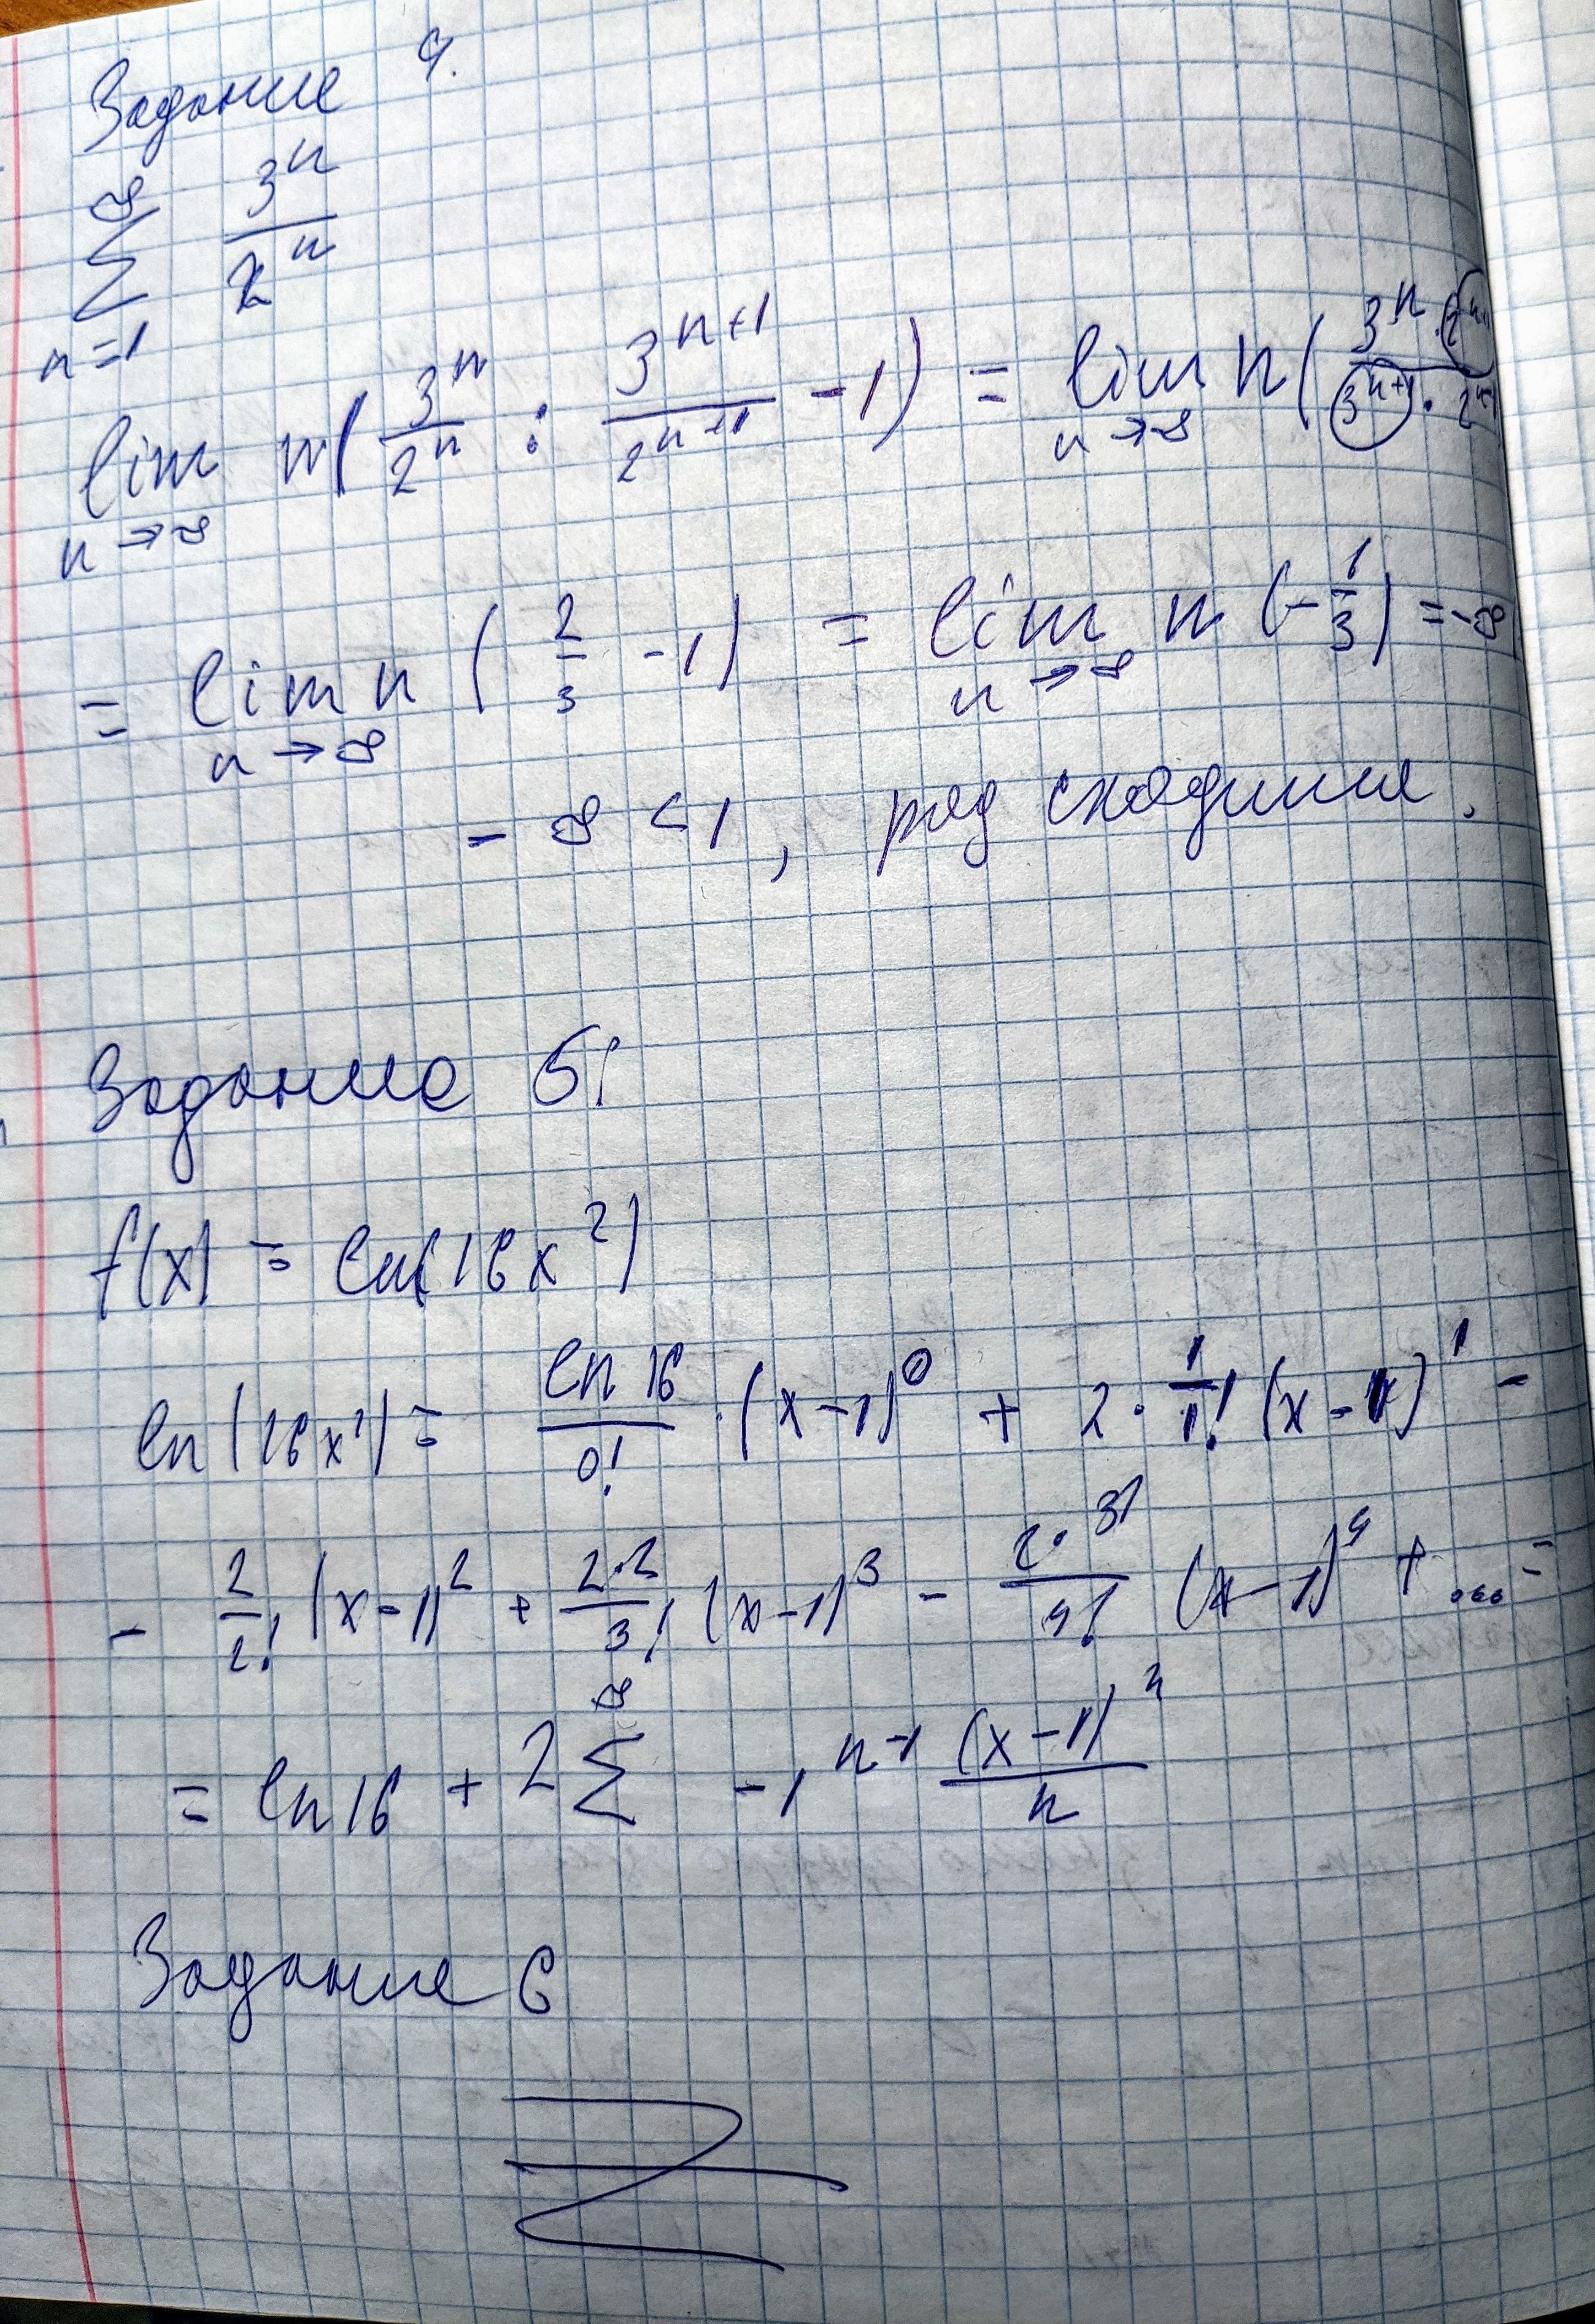 Задание 4.
∞ ∑ n=1 3^n / 2^n
lim n→∞ n(3^n / 2^n : 3^(n+1) / 2^(n+1) - 1) = lim n→∞ n(3^n · 2^(n+1) / 3^(n+1) · 2^n
= lim n→∞ n(2/3 - 1) = lim n→∞ n(-1/3) = -∞
-∞ < 1, ряд сходится.
Задание 5:
f(x) = ln(16x^2)
ln(16x^2) = ln 16 / 0! · (x-1)^0 + 2 · 1/1! (x-1)^1 -
- 2/2! (x-1)^2 + 2·2/3! (x-1)^3 - 2·3!/4! (x-1)^4 + ... =
= ln 16 + 2 ∑^∞ -1^(n-1) (x-1)^n / n
Задание 6